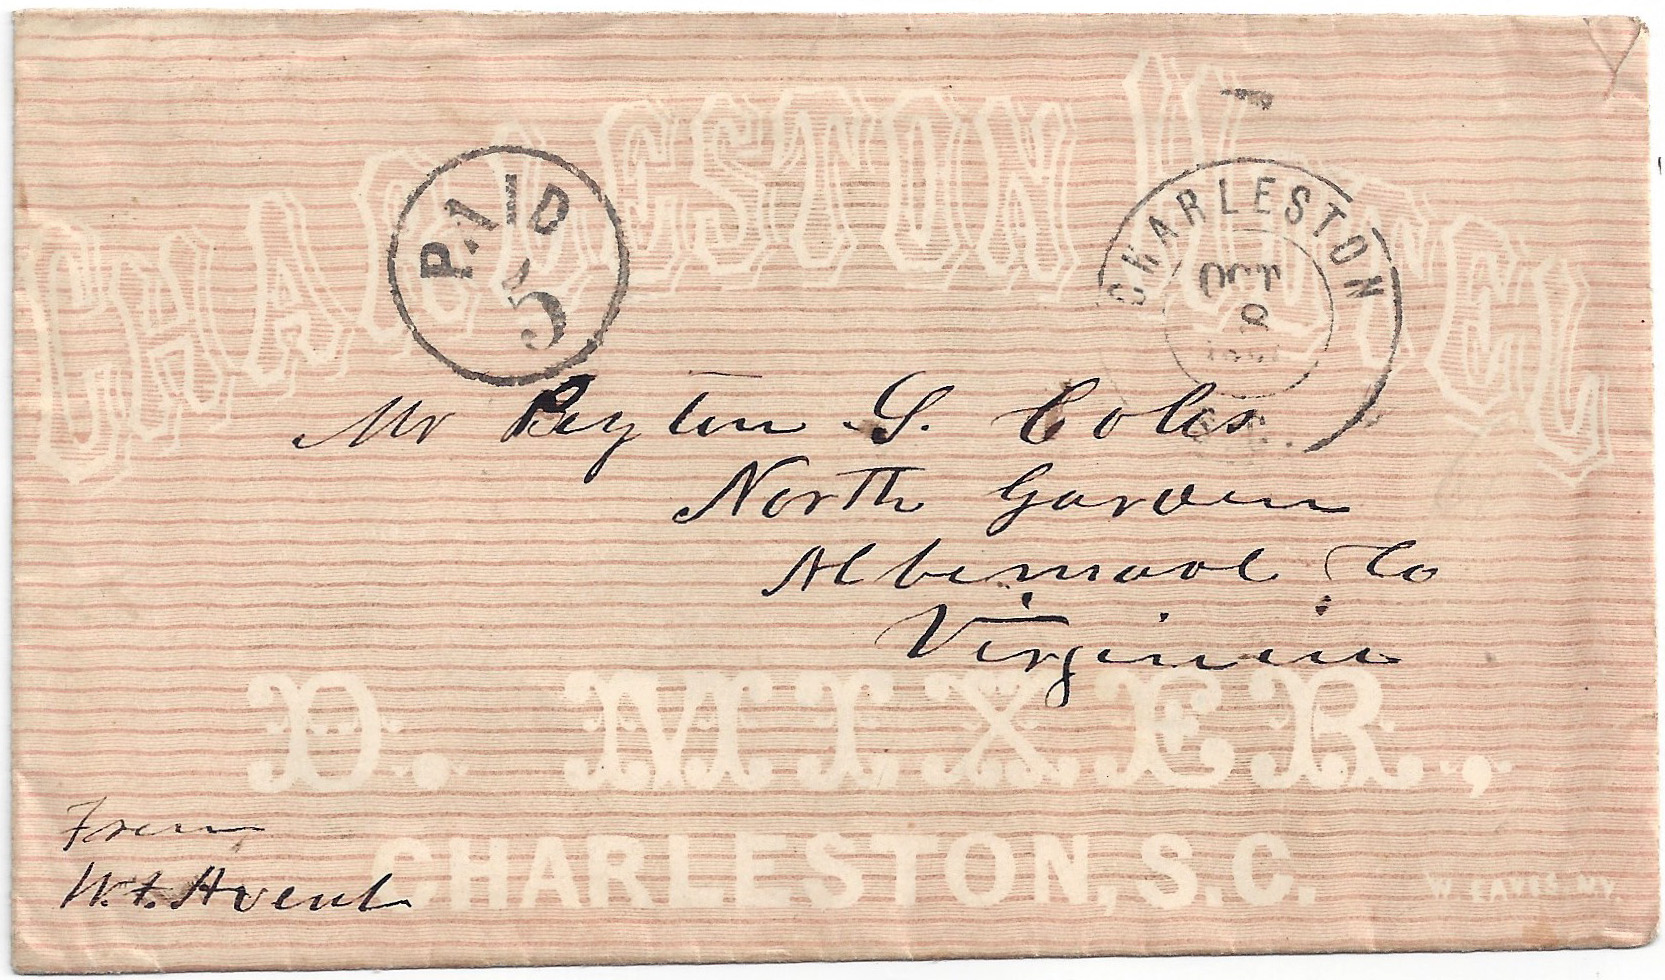 CHARLESTON HOTEL
PAID
5
CHARLESTON
OCT
S.C.
Mr Peyton S. Coles
North Garden
Albemarl Co
Virginia
D. MIXER,
CHARLESTON, S.C.
From
W. EAVES. N.Y.